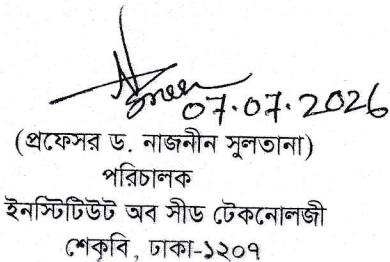 07.07.2026
(প্রফেসর ড. নাজনীন সুলতানা)
পরিচালক
ইনস্টিটিউট অব সীড টেকনোলজী
শেকৃবি, ঢাকা-১২০৭